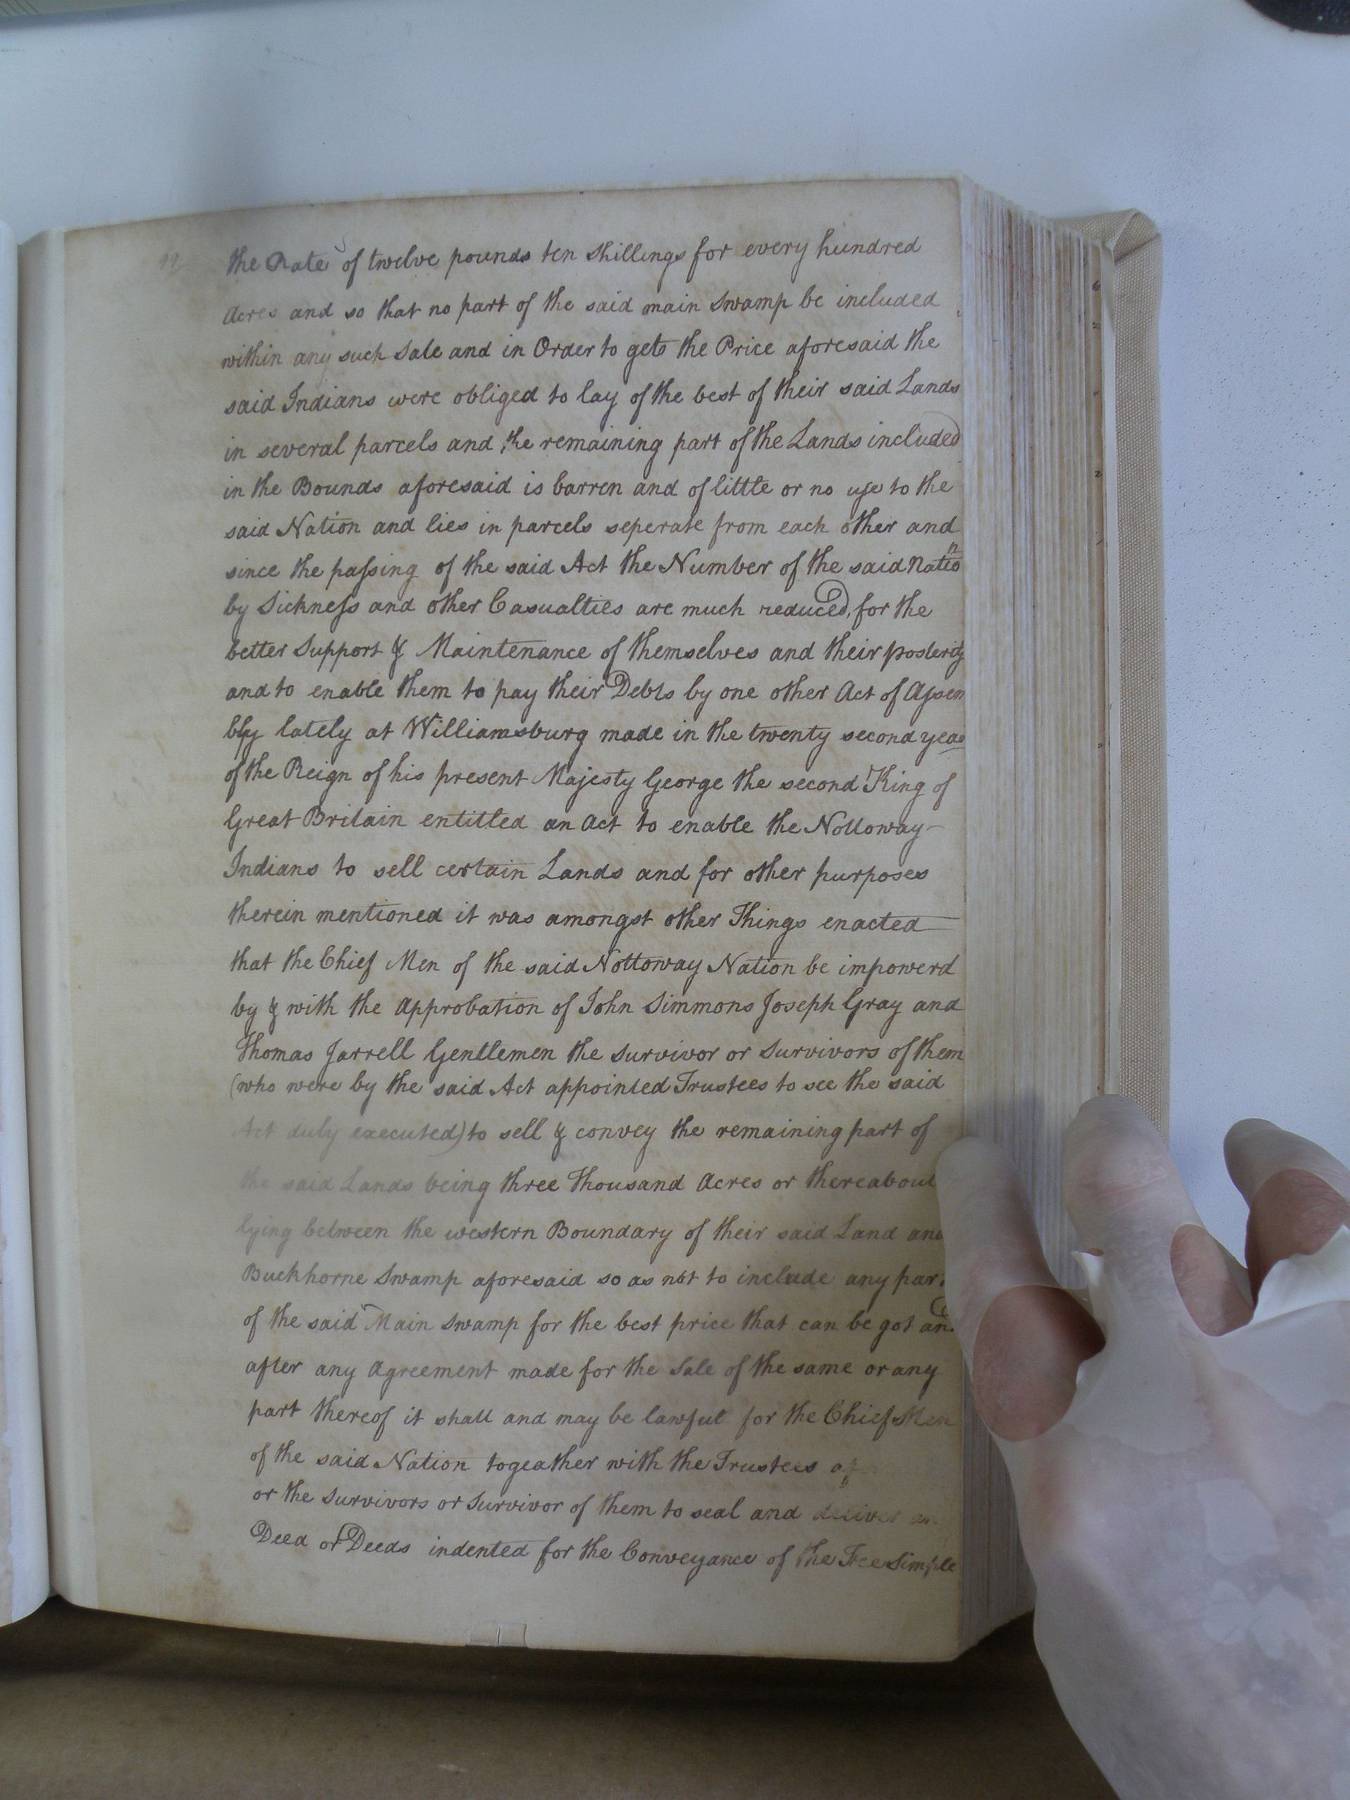 the Rate of twelve pounds ten shillings for every hundred
Acres and so that no part of the said main swamp be included
within any such Sale and in Order to gets the Price aforesaid the
said Indians were obliged to lay of the best of their said Lands
in several parcels and the remaining part of the Lands included
in the Bounds aforesaid is barren and of little or no use to the
said Nation and lies in parcels seperate from each other and
since the passing of the said Act the Number of the said Nation
by Sickness and other Casualties are much reduced, for the
better Support & Maintenance of themselves and their posterity
and to enable them to pay their Debts by one other Act of Assem
bly lately at Williamsburg made in the twenty second year
of the Reign of his present Majesty George the second King of
Great Britain entitled an Act to enable the Nottoway
Indians to sell certain Lands and for other purposes
therein mentioned it was amongst other Things enacted
that the Chief Men of the said Nottoway Nation be impowerd
by & with the Approbation of John Simmons Joseph Gray and
Thomas Jarrell Gentlemen the survivor or survivors of them
(who were by the said Act appointed Trustees to see the said
Act duly executed) to sell & convey the remaining part of
the said Lands being three Thousand Acres or thereabout
lying between the western Boundary of their said Land and
Buckhorne Swamp aforesaid so as not to include any par
of the said Main Swamp for the best price that can be got an
after any Agreement made for the Sale of the same or any
part thereof it shall and may be lawful for the Chief Men
of the said Nation togeather with the Trustees
or the survivors or survivor of them to seal and deliver an
Deed or Deeds indented for the Conveyance of the Fee Simple